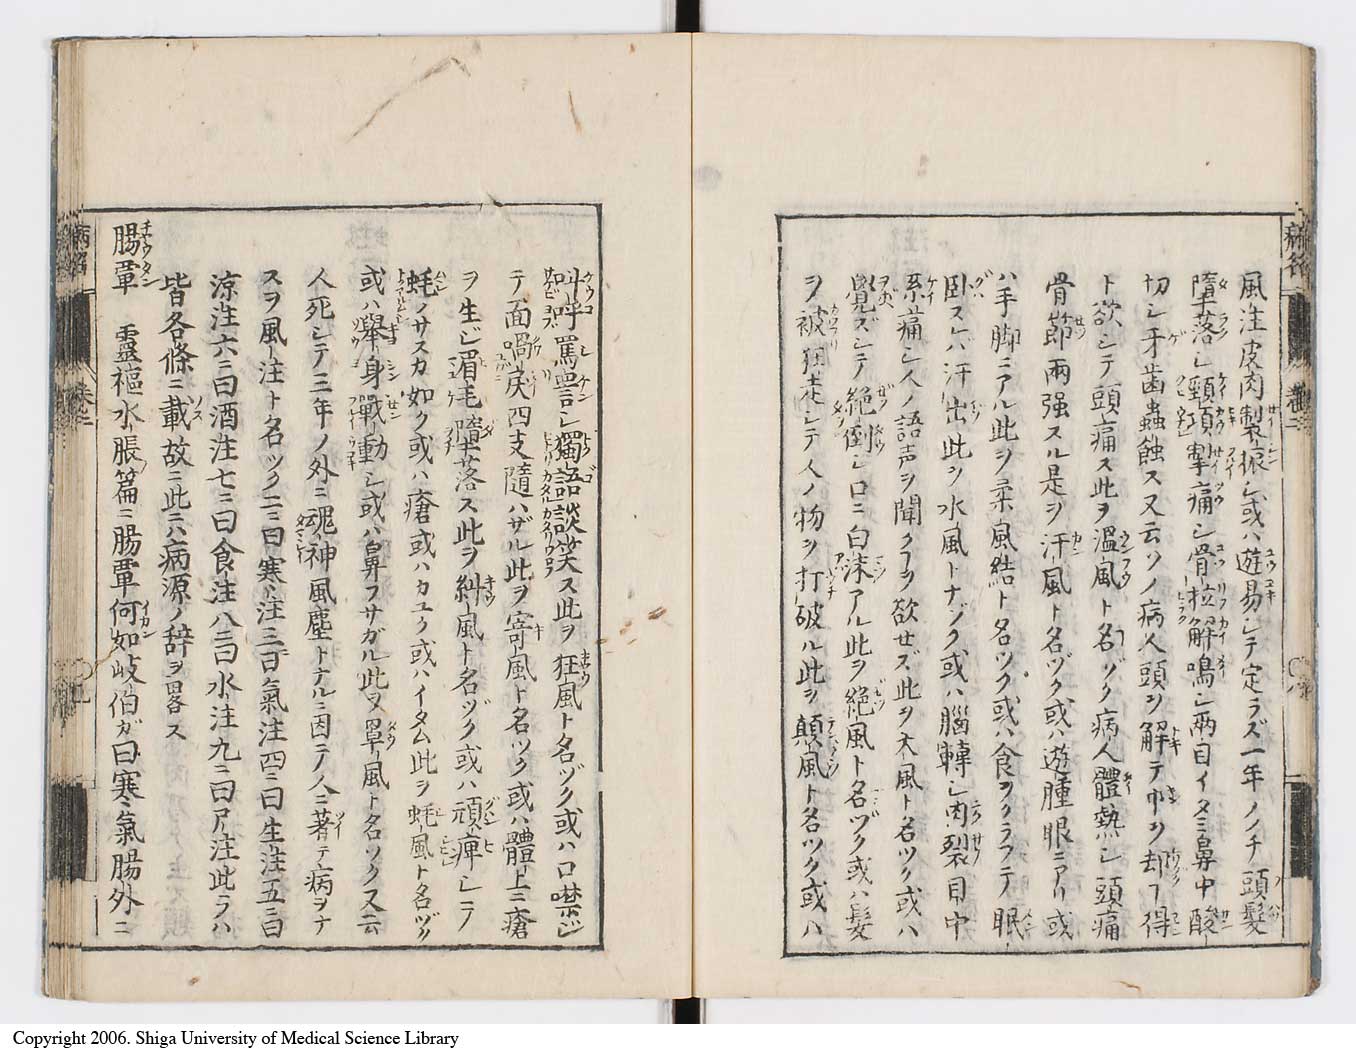 風注皮肉製振シ或ハ遊易シテ定ラズ一年ノノチ頭髮
墮落シ頸項掣痛シ骨拉解鳴シ兩目イタミ鼻中酸
切シ牙齒蟲蝕ス又云ソノ病人頭ヲ解テ巾ヲ却フ得
ト欲シテ頭痛ス此ヲ温風ト名ヅク病人體熱シ頭痛
骨節兩强スル是ヲ汗風ト名ヅク或ハ遊腫眼ニアリ或
ハ手脚ニアル此ヲ柔風結ト名ツク或ハ食ヲクラフテ眠
臥スレバ汗出此ヲ水風トナヅク或ハ腦轉シ肉裂目中
系痛シ人ノ語声ヲ聞クヿヲ欲セズ此ヲ大風ト名ツク或ハ
覺ズシテ絶倒シ口ニ白沫アル此ヲ絶風ト名ヅク或ハ髮
ヲ被狂走シテ人ノ物ヲ打破ル此ヲ顛風ト名ツク或ハ
叫呼罵詈シ獨語談笑ス此ヲ狂風ト名ヅク或ハ口噤ジ
テ面喎戾四支隨ハザル此ヲ寄風ト名ツク或ハ體上ニ瘡
ヲ生ジ眉毛墮落ス此ヲ糾風ト名ヅク或ハ頑痺シニテ
蚝ノサスカ如ク或ハ瘡或ハカユク或ハイタム此ヲ蚝風ト名ヅク
或ハ擧身戰動シ或ハ鼻フサガル此ヲ罩風ト名ツク又云
人死シテ三年ノ外ニ魂神風塵トナルニ因テ人ニ著テ病ヲナ
スヲ風注ト名ツク二ニ曰寒注三ニ曰氣注四ニ曰生注五ニ曰
涼注六ニ曰酒注七ニ曰食注八ニ曰水注九ニ曰尸注此ラハ
皆各條ニ載故ニ此ニハ病源ノ辞ヲ畧ス
腸覃　靈樞水脹篇ニ腸覃何如岐伯ガ曰寒氣腸外ニ
Copyright 2006. Shiga University of Medical Science Library